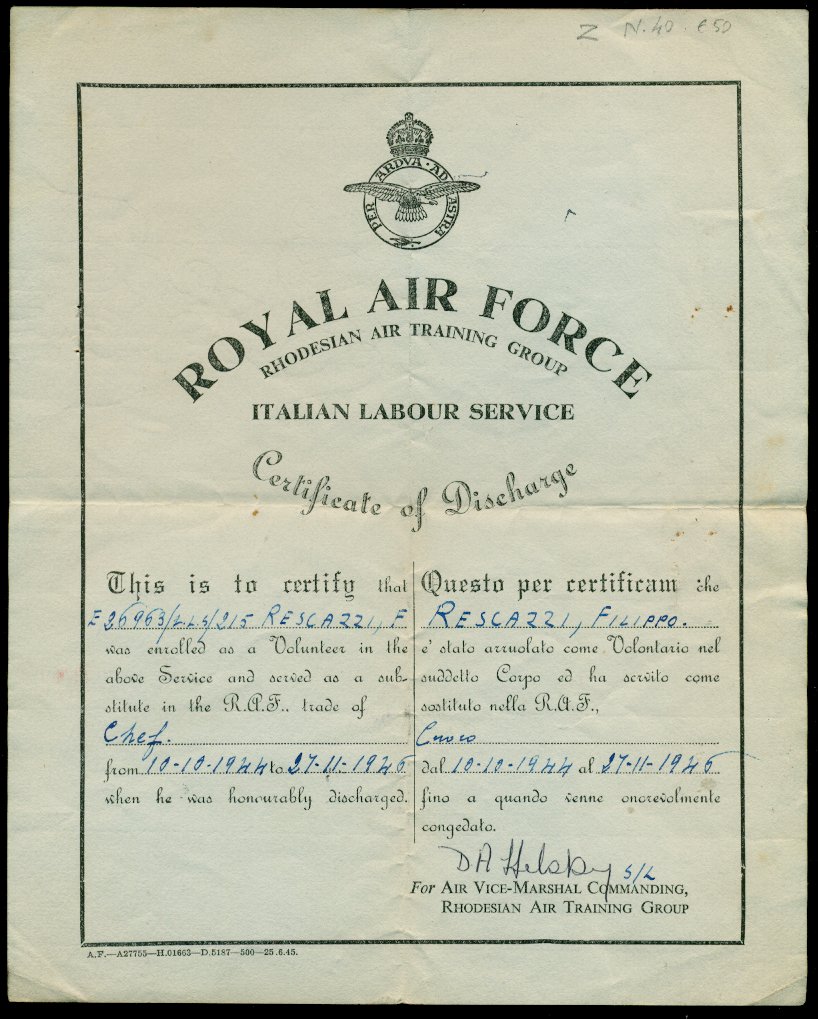 Z N.40. €50
PER ARDVA · AD ASTRA
ROYAL AIR FORCE
RHODESIAN AIR TRAINING GROUP
ITALIAN LABOUR SERVICE
Certificate of Discharge
This is to certify that
E26963/LLS/215 RESCAZZI, F.
was enrolled as a Volunteer in the
above Service and served as a sub-
stitute in the R.A.F.. trade of
Chef.
from 10-10-1944 to 27-11-1946
when he was honourably discharged.
Questo per certificam che
RESCAZZI, FILIPPO.
e' stato arruolato come Volontario nel
suddetto Corpo ed ha servito come
sostituto nella R.A.F.,
Cuoco
dal 10-10-1944 al 27-11-1946
fino a quando venne onorevolmente
congedato.
S/L
For AIR VICE-MARSHAL COMMANDING,
RHODESIAN AIR TRAINING GROUP
A.F.—A27755—H.01663—D.5187—500—25.6.45.